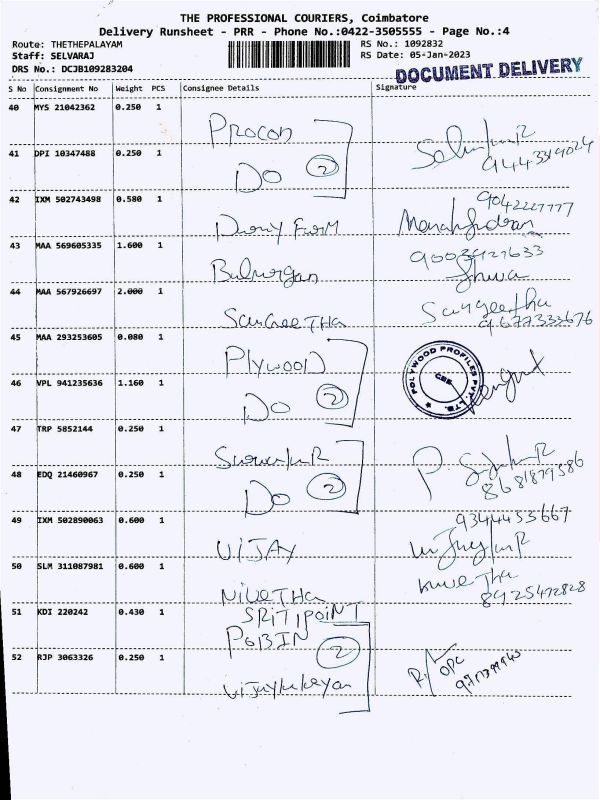 THE PROFESSIONAL COURIERS, Coimbatore
Delivery Runsheet - PRR - Phone No.:0422-3505555 - Page No.:4
Route: THETHEPALAYAM
Staff: SELVARAJ
DRS No.: DCJB109283204
RS No.: 1092832
RS Date: 05-Jan-2023
DOCUMENT DELIVERY
S No Consignment No Weight PCS Consignee Details Signature
40 MYS 21042362 0.250 1
PROCON
41 DPI 10347488 0.250 1
DO 2
9443319024
42 IXM 502743498 0.580 1
Farm
9042227777
43 MAA 569605335 1.600 1
Balmurgan
44 MAA 567926697 2.000 1
SanGeeTHa
Sangeetha
9677333676
45 MAA 293253605 0.080 1
PLYWOOD
46 VPL 941235636 1.160 1
DO 2
POLYWOOD PROFILES PVT. LTD.
CBE
47 TRP 5852144 0.250 1
48 EDQ 21460967 0.250 1
DO 2
P.
8681879386
49 IXM 502890063 0.600 1
VIJAY
9344455667
50 SLM 311087981 0.600 1
NiveTHa
8925472828
51 KDI 220242 0.430 1
SRITIPOINT
52 RJP 3063326 0.250 1
2